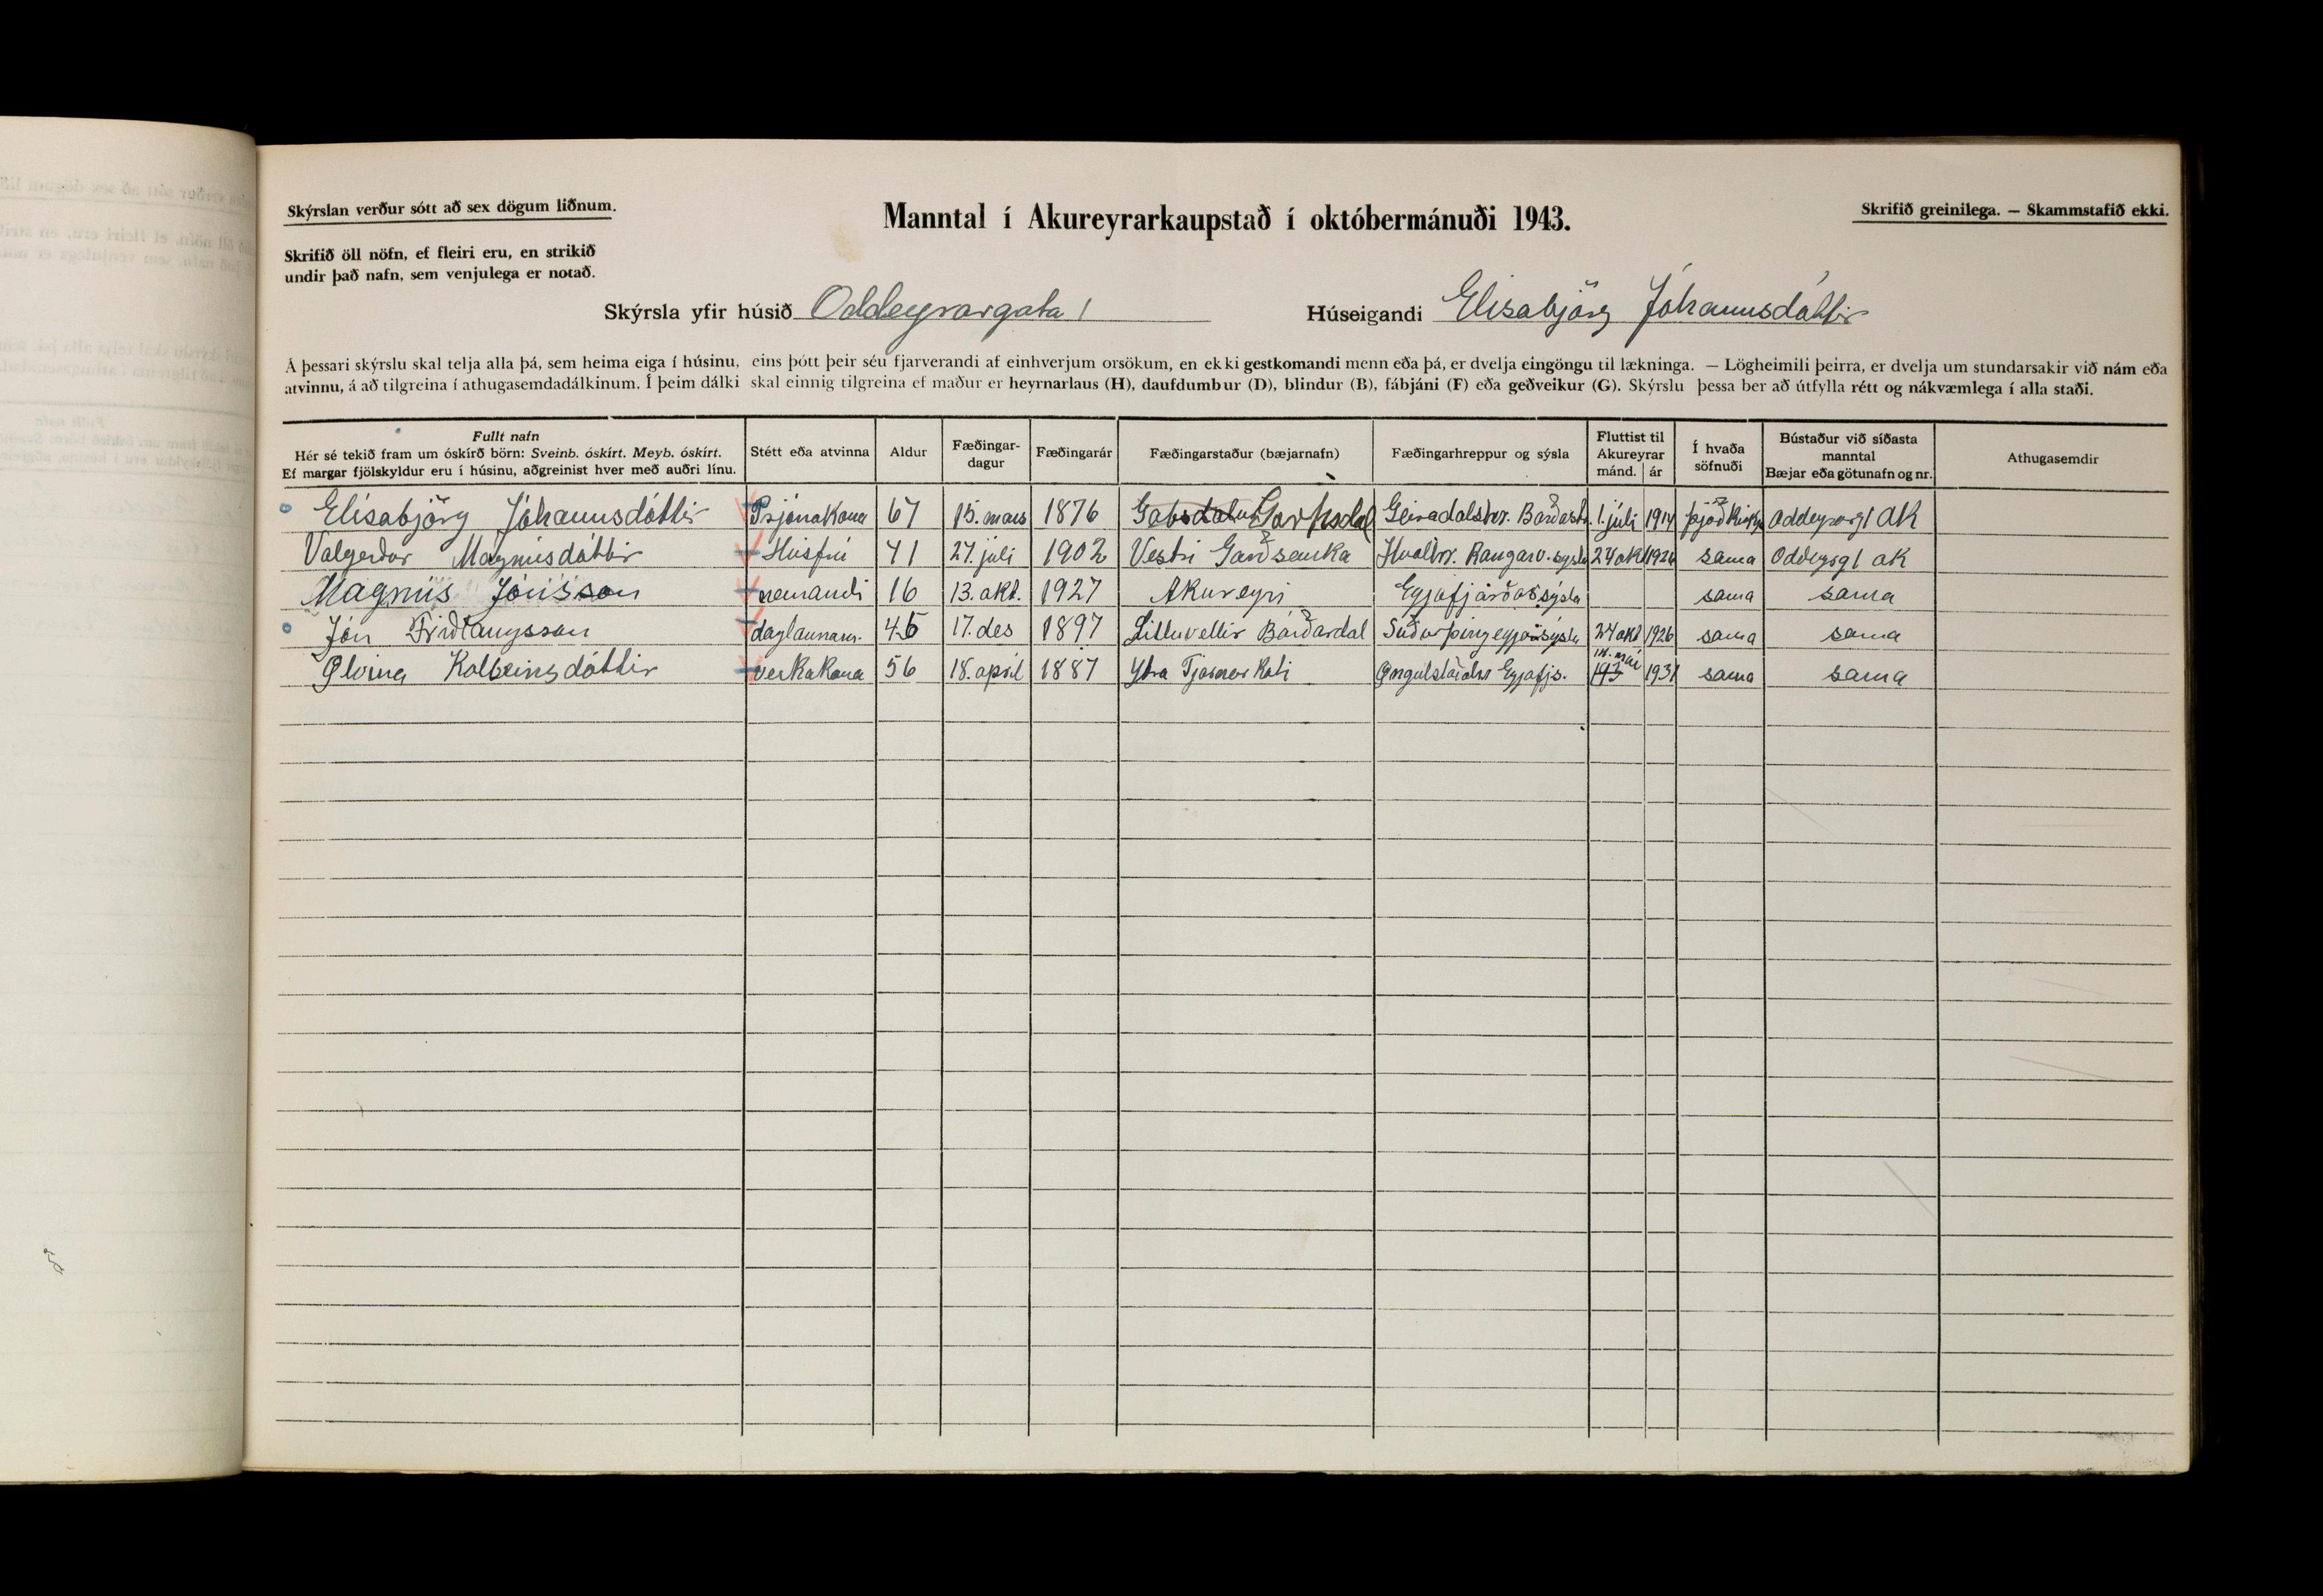 Skýrslan verður sótt að sex dögum liðnum.
Manntal í Akureyrarkaupstað í októbermánuði 1943.
Skrifið greinilega. — Skammstafið ekki.
Skrifið öll nöfn, ef fleiri eru, en strikið
undir það nafn, sem venjulega er notað.
Skýrsla yfir húsið Oddeyrargata 1
Húseigandi Elísabjörg Jóhannsdóttir
Á þessari skýrslu skal telja alla þá, sem heima eiga í húsinu, eins þótt þeir séu fjarverandi af einhverjum orsökum, en ekki gestkomandi menn eða þá, er dvelja eingöngu til lækninga. — Lögheimili þeirra, er dvelja um stundarsakir við nám eða
atvinnu, á að tilgreina í athugasemdadálkinum. Í þeim dálki skal einnig tilgreina ef maður er heyrnarlaus (H), daufdumbur (D), blindur (B), fábjáni (F) eða geðveikur (G). Skýrslu þessa ber að útfylla rétt og nákvæmlega í alla staði.
Fullt nafn
Hér sé tekið fram um óskírð börn: Sveinb. óskírt. Meyb. óskírt.
Ef margar fjölskyldur eru í húsinu, aðgreinist hver með auðri línu.
Stétt eða atvinna
Aldur
Fæðingar-
dagur
Fæðingarár
Fæðingarstaður (bæjarnafn)
Fæðingarhreppur og sýsla
Fluttist til
Akureyrar
mánd. ár
Í hvaða
söfnuði
Bústaður við síðasta
manntal
Bæjar eða götunafn og nr.
Athugasemdir
Elísabjörg Jóhannsdóttir Prjónakona 67 15. mars 1876 Garpsdal Geiradalshr. Barðastr. 1. júli 1914 þjóðkirkju Oddeyrarg 1 AK
Valgerður Magnúsdóttir Húsfrú 41 27. júli 1902 Vestri Garðsauka Hvolhr. Rangárv. sýslu 24 okt 1926 sama Oddeyrg 1 ak
Magnús Jónsson nemandi 16 13. okt. 1927 Akureyri Eyjafjarðarsýslu sama sama
Jón Friðlaugsson daglaunam. 45 17. des 1897 Litluvellir Bárðardal Suðurþingeyjarsýslu 24 okt 1926 sama sama
Ólvina Kolbeinsdóttir verkakona 56 18. apríl 1887 Ytra Tjarnarkoti Öngulstaðahr Eyjafjs. 14. maí 1931 sama sama